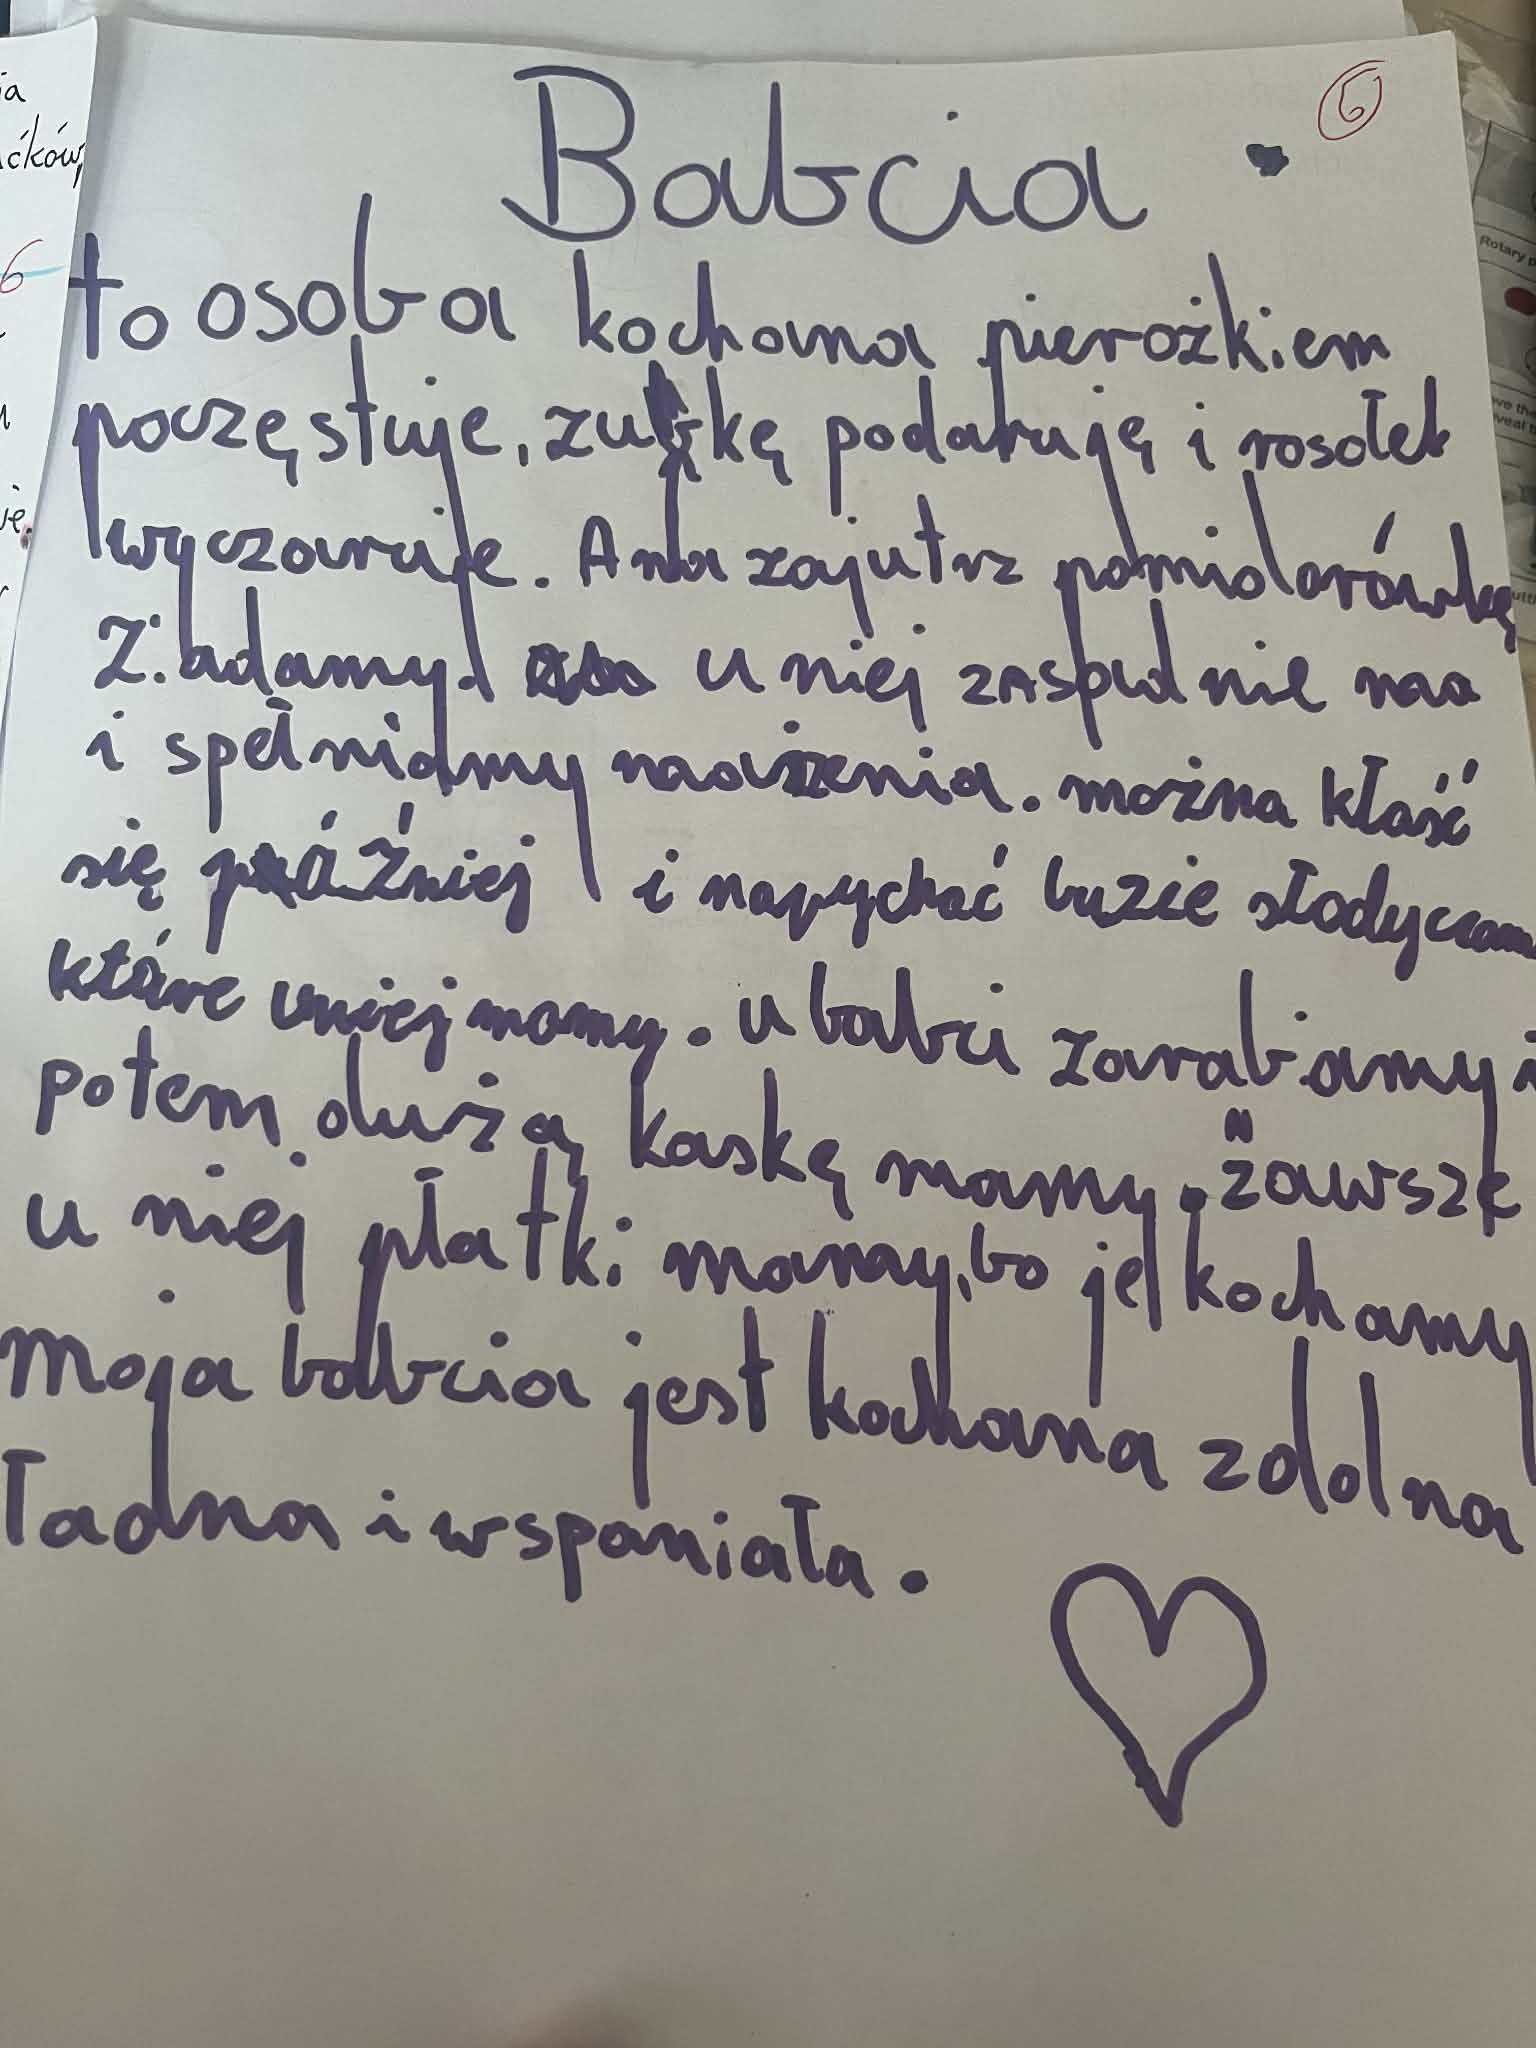 Babcia
6
to osoba kochana pierożkiem
poczęstuje, zupkę podaruję i rosołek
wyczaruje. A na zajutrz pomidorówkę
Zjadamy. u niej zaspid nie naa
i spełniamy maożenia. można kłaść
się później i napychać buzie słodyczami
które u niej mamy. u babci zarabiamy i
potem dużą kaskę mamy. zawsze
u niej płatki mamy, bo je kochamy
moja babcia jest kochana zdolna
ładna i wspaniała.
ia
ćków,
6
ię
Rotary p